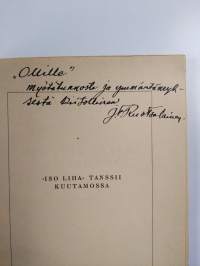 „Ollille"
myötätunnosta ja ymmärtämyk-
sestä kiitollisena
"ISO LIHA" TANSSII
KUUTAMOSSA